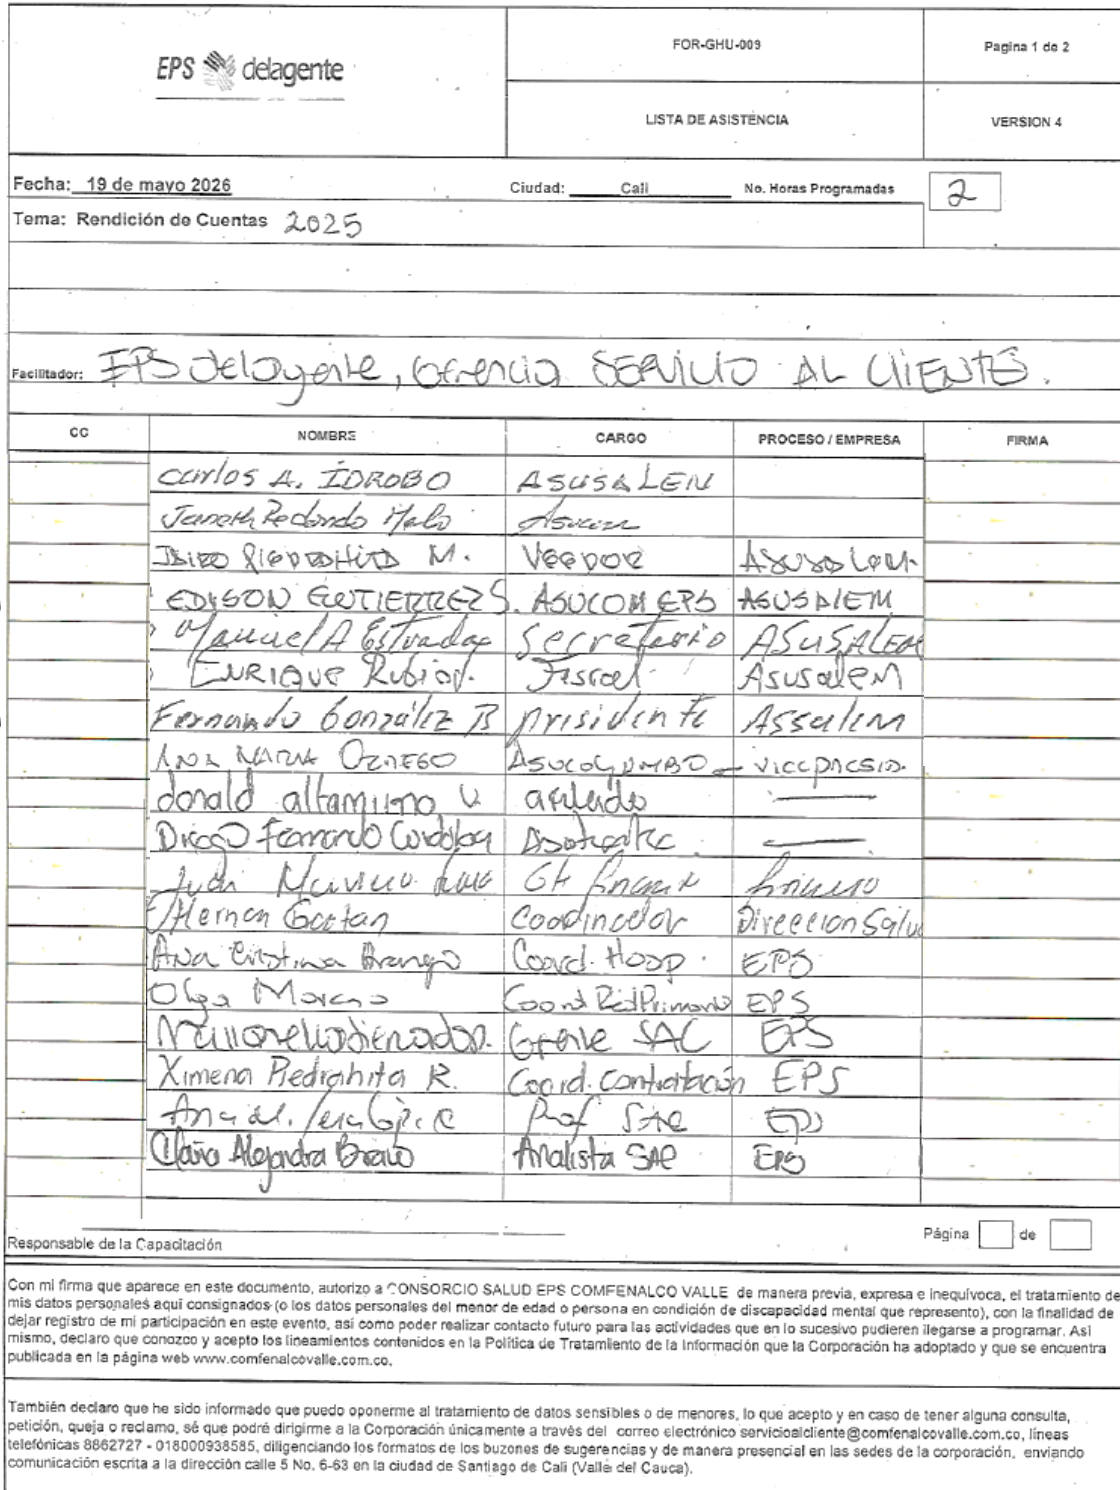 EPS delagente
FOR-GHU-009
Pagina 1 de 2
LISTA DE ASISTENCIA
VERSION 4
Fecha: 19 de mayo 2026 Ciudad: Cali No. Horas Programadas 2
Tema: Rendición de Cuentas 2025
Facilitador: EPS delagente, Gerencia SERVICIO AL CLIENTE.
CC NOMBRE CARGO PROCESO / EMPRESA FIRMA
Carlos A. IDROBO ASUSALEN
Janeth Redondo
M. VEEDOR Asusalem.
EDYSON GUTIERREZ S. ASUCOM EPS ASUSALEM
Manuel A Estrada Secretario ASUSALEM
ENRIQUE Rubio Fiscal Asusalem
Fernando González B presidente Assalem
ANA MARIA
donald altamirano V.
Diego Fernando Cordoba
Hernan Gaitan Coordinador Direccion Salud
Ana Cristina Arango Coord. Hosp. EPS
Olga Moreno Coord Red Primaria EPS
Gerente SAC EPS
Ximena Piedrahita R. Coord. Contratación EPS
Prof SAC EPS
Alejandra Bravo Analista SAC EPS
Responsable de la Capacitación
Página de
Con mi firma que aparece en este documento, autorizo a CONSORCIO SALUD EPS COMFENALCO VALLE de manera previa, expresa e inequívoca, el tratamiento de
mis datos personales aquí consignados (o los datos personales del menor de edad o persona en condición de discapacidad mental que represento), con la finalidad de
dejar registro de mi participación en este evento, así como poder realizar contacto futuro para las actividades que en lo sucesivo pudieren llegarse a programar. Así
mismo, declaro que conozco y acepto los lineamientos contenidos en la Política de Tratamiento de la Información que la Corporación ha adoptado y que se encuentra
publicada en la página web www.comfenalcovalle.com.co.
También declaro que he sido informado que puedo oponerme al tratamiento de datos sensibles o de menores, lo que acepto y en caso de tener alguna consulta,
petición, queja o reclamo, sé que podré dirigirme a la Corporación únicamente a través del correo electrónico servicioalcliente@comfenalcovalle.com.co, líneas
telefónicas 8862727 - 018000938585, diligenciando los formatos de los buzones de sugerencias y de manera presencial en las sedes de la corporación, enviando
comunicación escrita a la dirección calle 5 No. 6-63 en la ciudad de Santiago de Cali (Valle del Cauca).